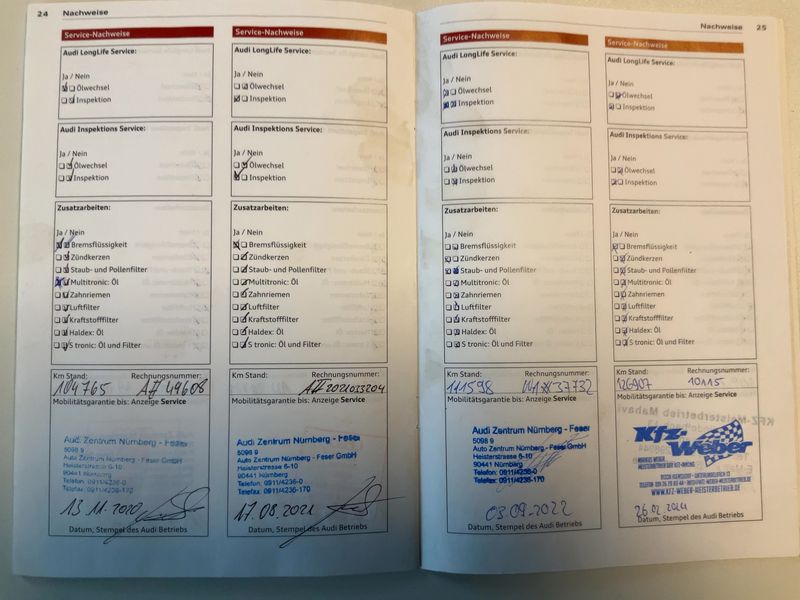 24 Nachweise
Service-Nachweise
Audi LongLife Service:
Ja / Nein
Ölwechsel
Inspektion
Audi Inspektions Service:
Ja / Nein
Ölwechsel
Inspektion
Zusatzarbeiten:
Ja / Nein
Bremsflüssigkeit
Zündkerzen
Staub- und Pollenfilter
Multitronic: Öl
Zahnriemen
Luftfilter
Kraftstofffilter
Haldex: Öl
S tronic: Öl und Filter
Km Stand: Rechnungsnummer:
104765 A# 49608
Mobilitätsgarantie bis: Anzeige Service
Audi Zentrum Nürnberg - Feser
5098 9
Auto Zentrum Nürnberg - Feser GmbH
Heisterstrasse 6-10
90441 Nürnberg
Telefon: 0911/4236-0
Telefax: 0911/4236-170
13 11. 2020
Datum, Stempel des Audi Betriebs
Service-Nachweise
Audi LongLife Service:
Ja / Nein
Ölwechsel
Inspektion
Audi Inspektions Service:
Ja / Nein
Ölwechsel
Inspektion
Zusatzarbeiten:
Ja / Nein
Bremsflüssigkeit
Zündkerzen
Staub- und Pollenfilter
Multitronic: Öl
Zahnriemen
Luftfilter
Kraftstofffilter
Haldex: Öl
S tronic: Öl und Filter
Km Stand: Rechnungsnummer:
Mobilitätsgarantie bis: Anzeige Service
Audi Zentrum Nürnberg - Feser
5098 9
Auto Zentrum Nürnberg - Feser GmbH
Heisterstrasse 6-10
90441 Nürnberg
Telefon: 0911/4236-0
Telefax: 0911/4236-170
17.08.2021
Datum, Stempel des Audi Betriebs
Nachweise 25
Service-Nachweise
Audi LongLife Service:
Ja / Nein
Ölwechsel
Inspektion
Audi Inspektions Service:
Ja / Nein
Ölwechsel
Inspektion
Zusatzarbeiten:
Ja / Nein
Bremsflüssigkeit
Zündkerzen
Staub- und Pollenfilter
Multitronic: Öl
Zahnriemen
Luftfilter
Kraftstofffilter
Haldex: Öl
S tronic: Öl und Filter
Km Stand: Rechnungsnummer:
111598
Mobilitätsgarantie bis: Anzeige Service
Audi Zentrum Nürnberg - Feser
5098 9
Auto Zentrum Nürnberg - Feser GmbH
Heisterstrasse 6-10
90441 Nürnberg
Telefon: 0911/4236-0
Telefax: 0911/4236-170
03.09.2022
Datum, Stempel des Audi Betriebs
Service-Nachweise
Audi LongLife Service:
Ja / Nein
Ölwechsel
Inspektion
Audi Inspektions Service:
Ja / Nein
Ölwechsel
Inspektion
Zusatzarbeiten:
Ja / Nein
Bremsflüssigkeit
Zündkerzen
Staub- und Pollenfilter
Multitronic: Öl
Zahnriemen
Luftfilter
Kraftstofffilter
Haldex: Öl
S tronic: Öl und Filter
Km Stand: Rechnungsnummer:
126907 10115
Mobilitätsgarantie bis: Anzeige Service
Kfz-Weber
MARKUS WEBER
MEISTERBETRIEB DER KFZ-INNUNG
WWW.KFZ-WEBER-MEISTERBETRIEB.DE
26 02 2024
Datum, Stempel des Audi Betriebs